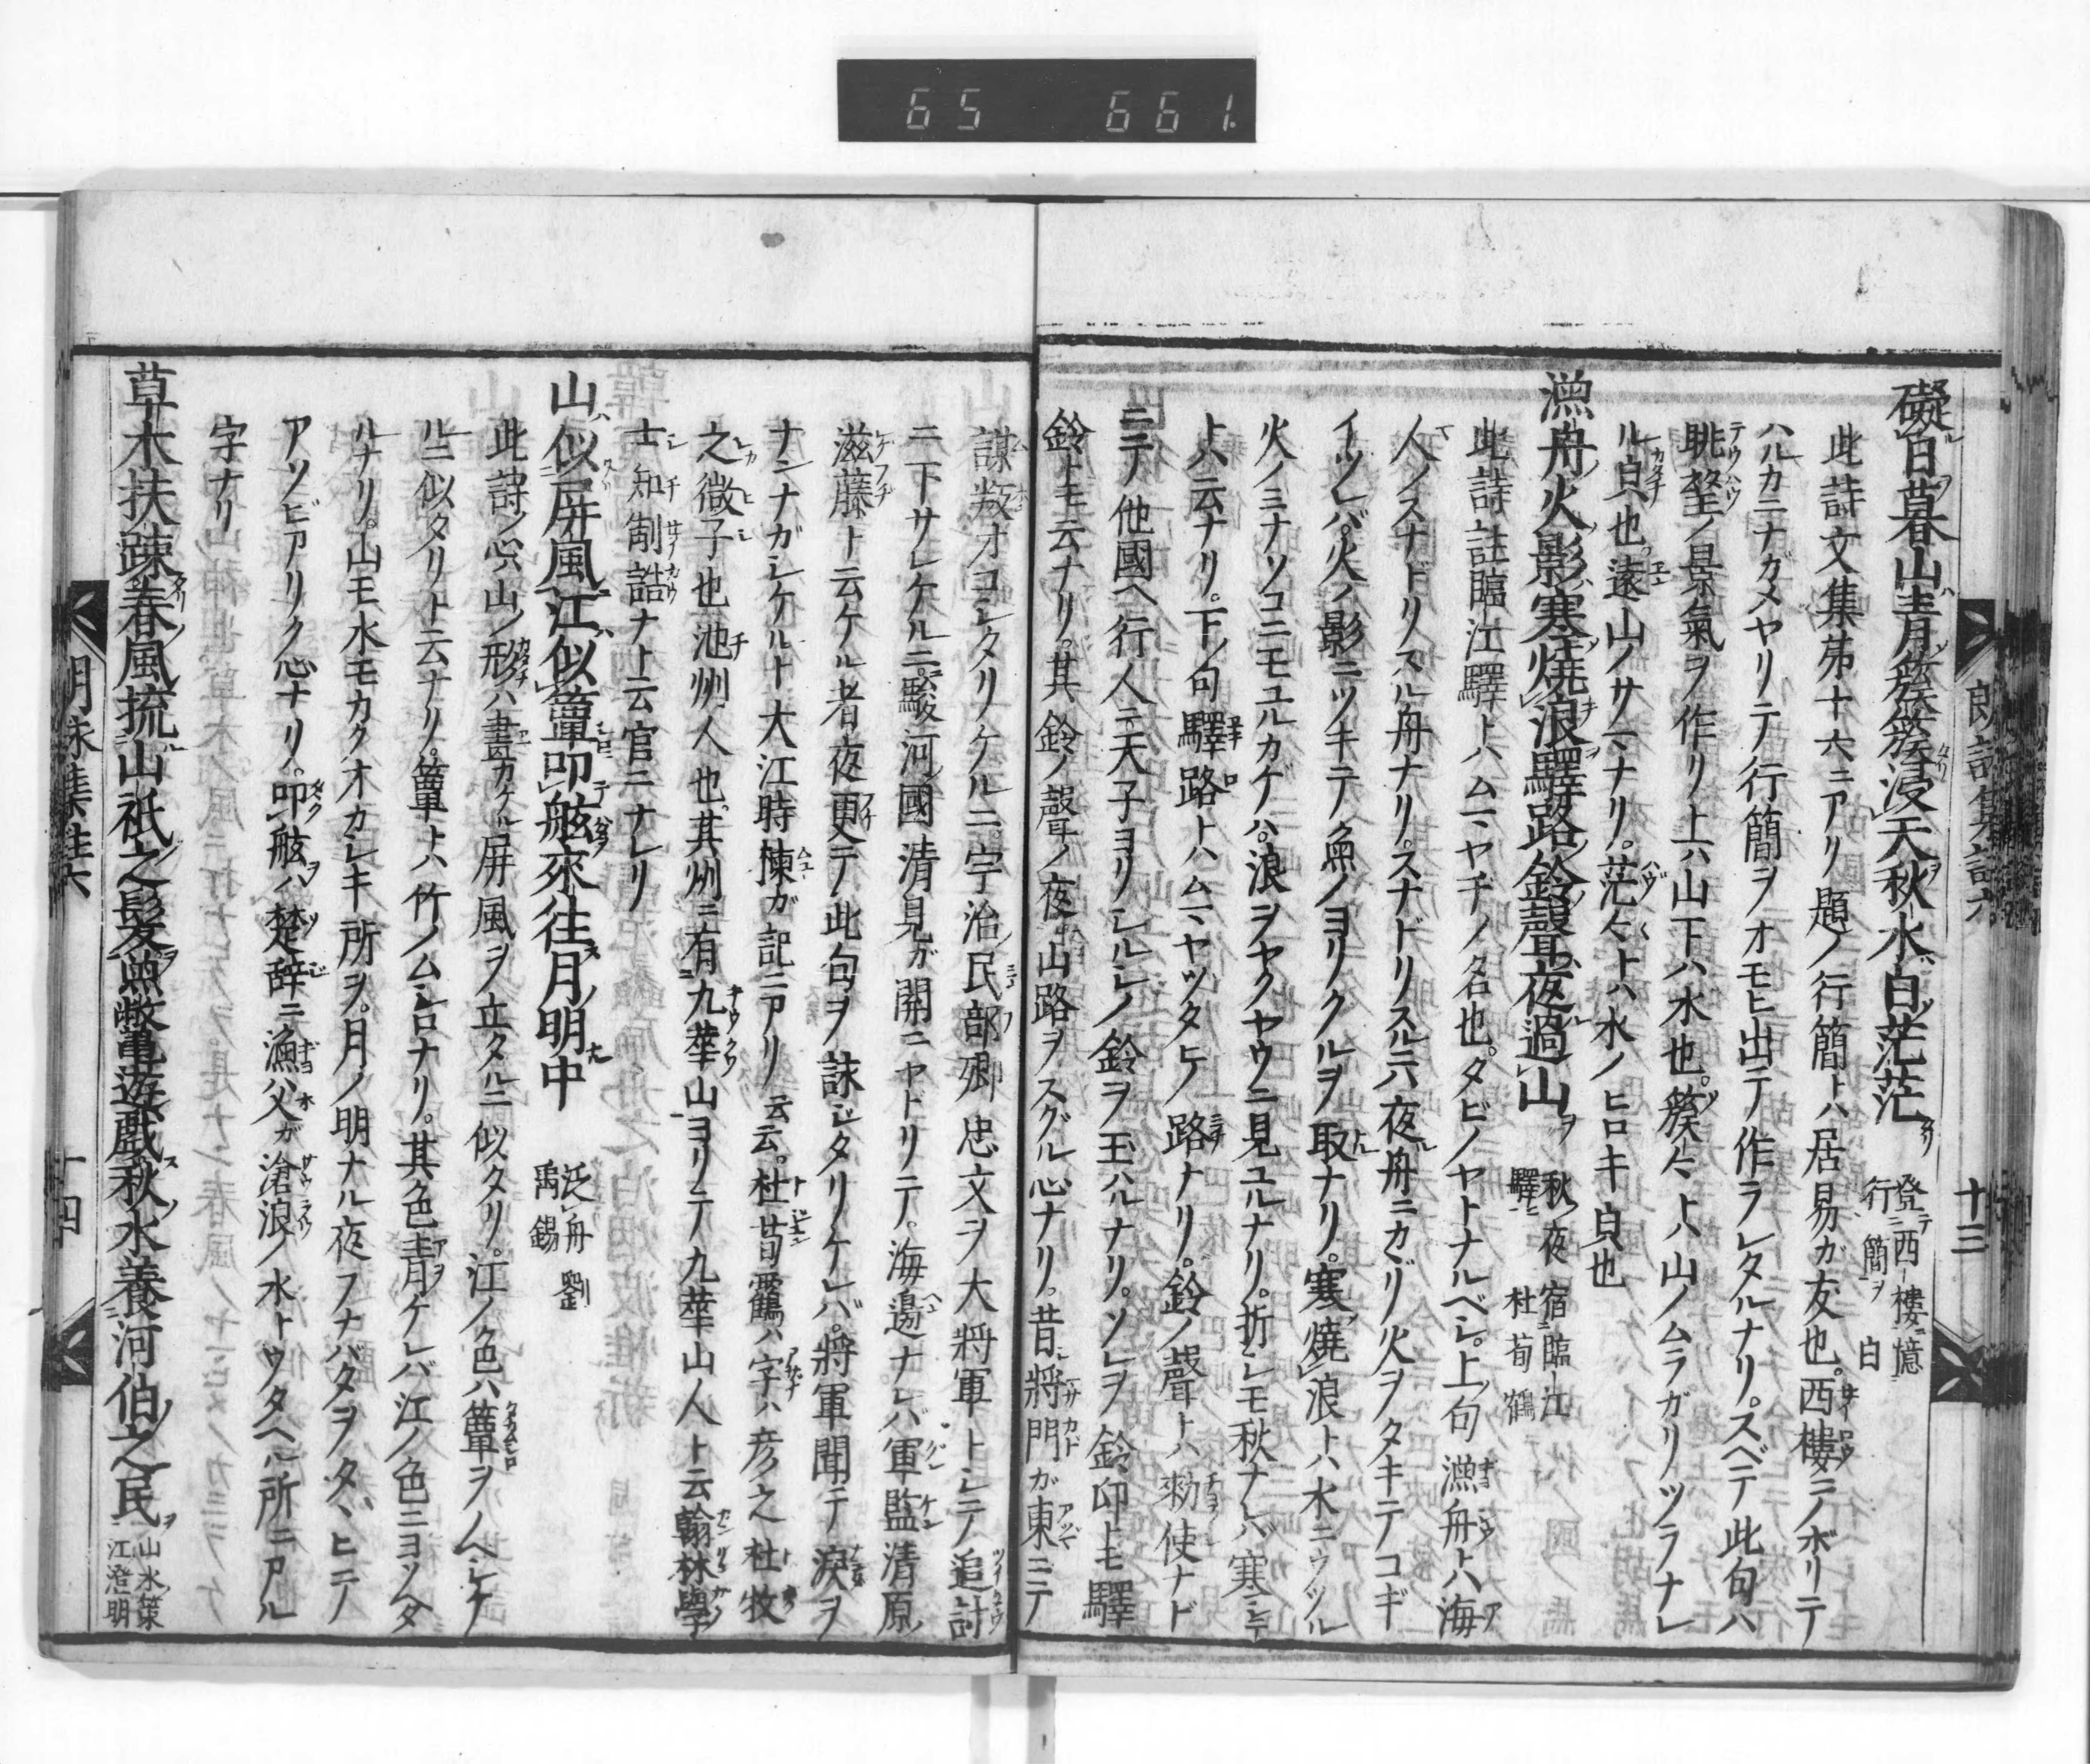 65 661.
朗詠集註六
十三
礙日暮山青簇簇浸天秋水白茫茫 登西樓憶行簡 白
此詩文集第十六ニアリ題ノ行簡トハ居易ガ友也。西樓ニノボリテ
ハルカニナガメヤリテ行簡ヲオモヒ出テ作ラレタルナリ。スベテ此句ハ
眺望ノ景氣ヲ作リ上ハ山下ハ水也。簇々トハ山ノムラガリツラナレ
ル皃也。遠山ノサマナリ。茫々トハ水ノヒロキ皃也
漁舟火影寒燒浪驛路鈴聲夜過山 秋夜宿臨江驛 杜荀鶴
此詩註臨江驛トハムマヤヂノ名也。タビノヤトナルベシ。上句漁舟トハ海
人ノスナドリスル舟ナリ。スナドリスルニ夜舟ニカヾリ火ヲタキテコギ
イヅレバ。火ノ影ニツキテ魚ノヨリクルヲ取ナリ。寒燒浪トハ水ニウツル
火ノミナソコニモユルカゲハ。浪ヲヤクヤウニ見ユルナリ。折シモ秋ナレバ寒シ
ト云ナリ。下ノ句驛路トハムマヤツタヒノ路ナリ。鈴ノ聲トハ勅使ナド
ニテ他國ヘ行人ニ天子ヨリシルシノ鈴ヲ玉ハルナリ。ソレヲ鈴印トモ驛
鈴トモ云ナリ。其鈴ノ聲ノ夜山路ヲスグル心ナリ。昔將門ガ東ニテ
謀叛オコシタリケルニ。宇治民部卿忠文ヲ大將軍トシテ追討
ニ下サレケルニ。駿河國清見ガ關ニヤドリテ。海邊ナレバ軍監清原
滋藤ト云ケル者夜更テ此句ヲ詠ジタリケレバ。將軍聞テ淚ヲ
ナンナガシケルト大江時棟ガ記ニアリ云云。杜荀靍ハ字ハ彦之杜牧
之微子也池州人也。其州ニ有九華山ヨリテ九華山人ト云翰林學
士知制誥ナト云官ニナレリ
山似屏風江似簟叩舷來往月明中 泛舟 劉禹錫
此詩ノ心山ノ形ハ畫カケル屏風ヲ立タルニ似タリ。江ノ色ハ簟ヲノベシケ
ルニ似タリト云ナリ。簟トハ竹ノムシロナリ。其色青ケレバ江ノ色ニヨソヘタ
ルナリ。山モ水モカクオカシキ所ヲ。月ノ明ナル夜フナバタヲタヽヒテ
アソビアリク心ナリ。叩舷ハ楚辞ニ漁父ガ滄浪ノ水トウタヘル所ニアル
字ナリ
草木扶踈春風梳山祇之髮魚鼈遊戲秋水養河伯之民 山水策 江澄明
朗詠集註六
十四